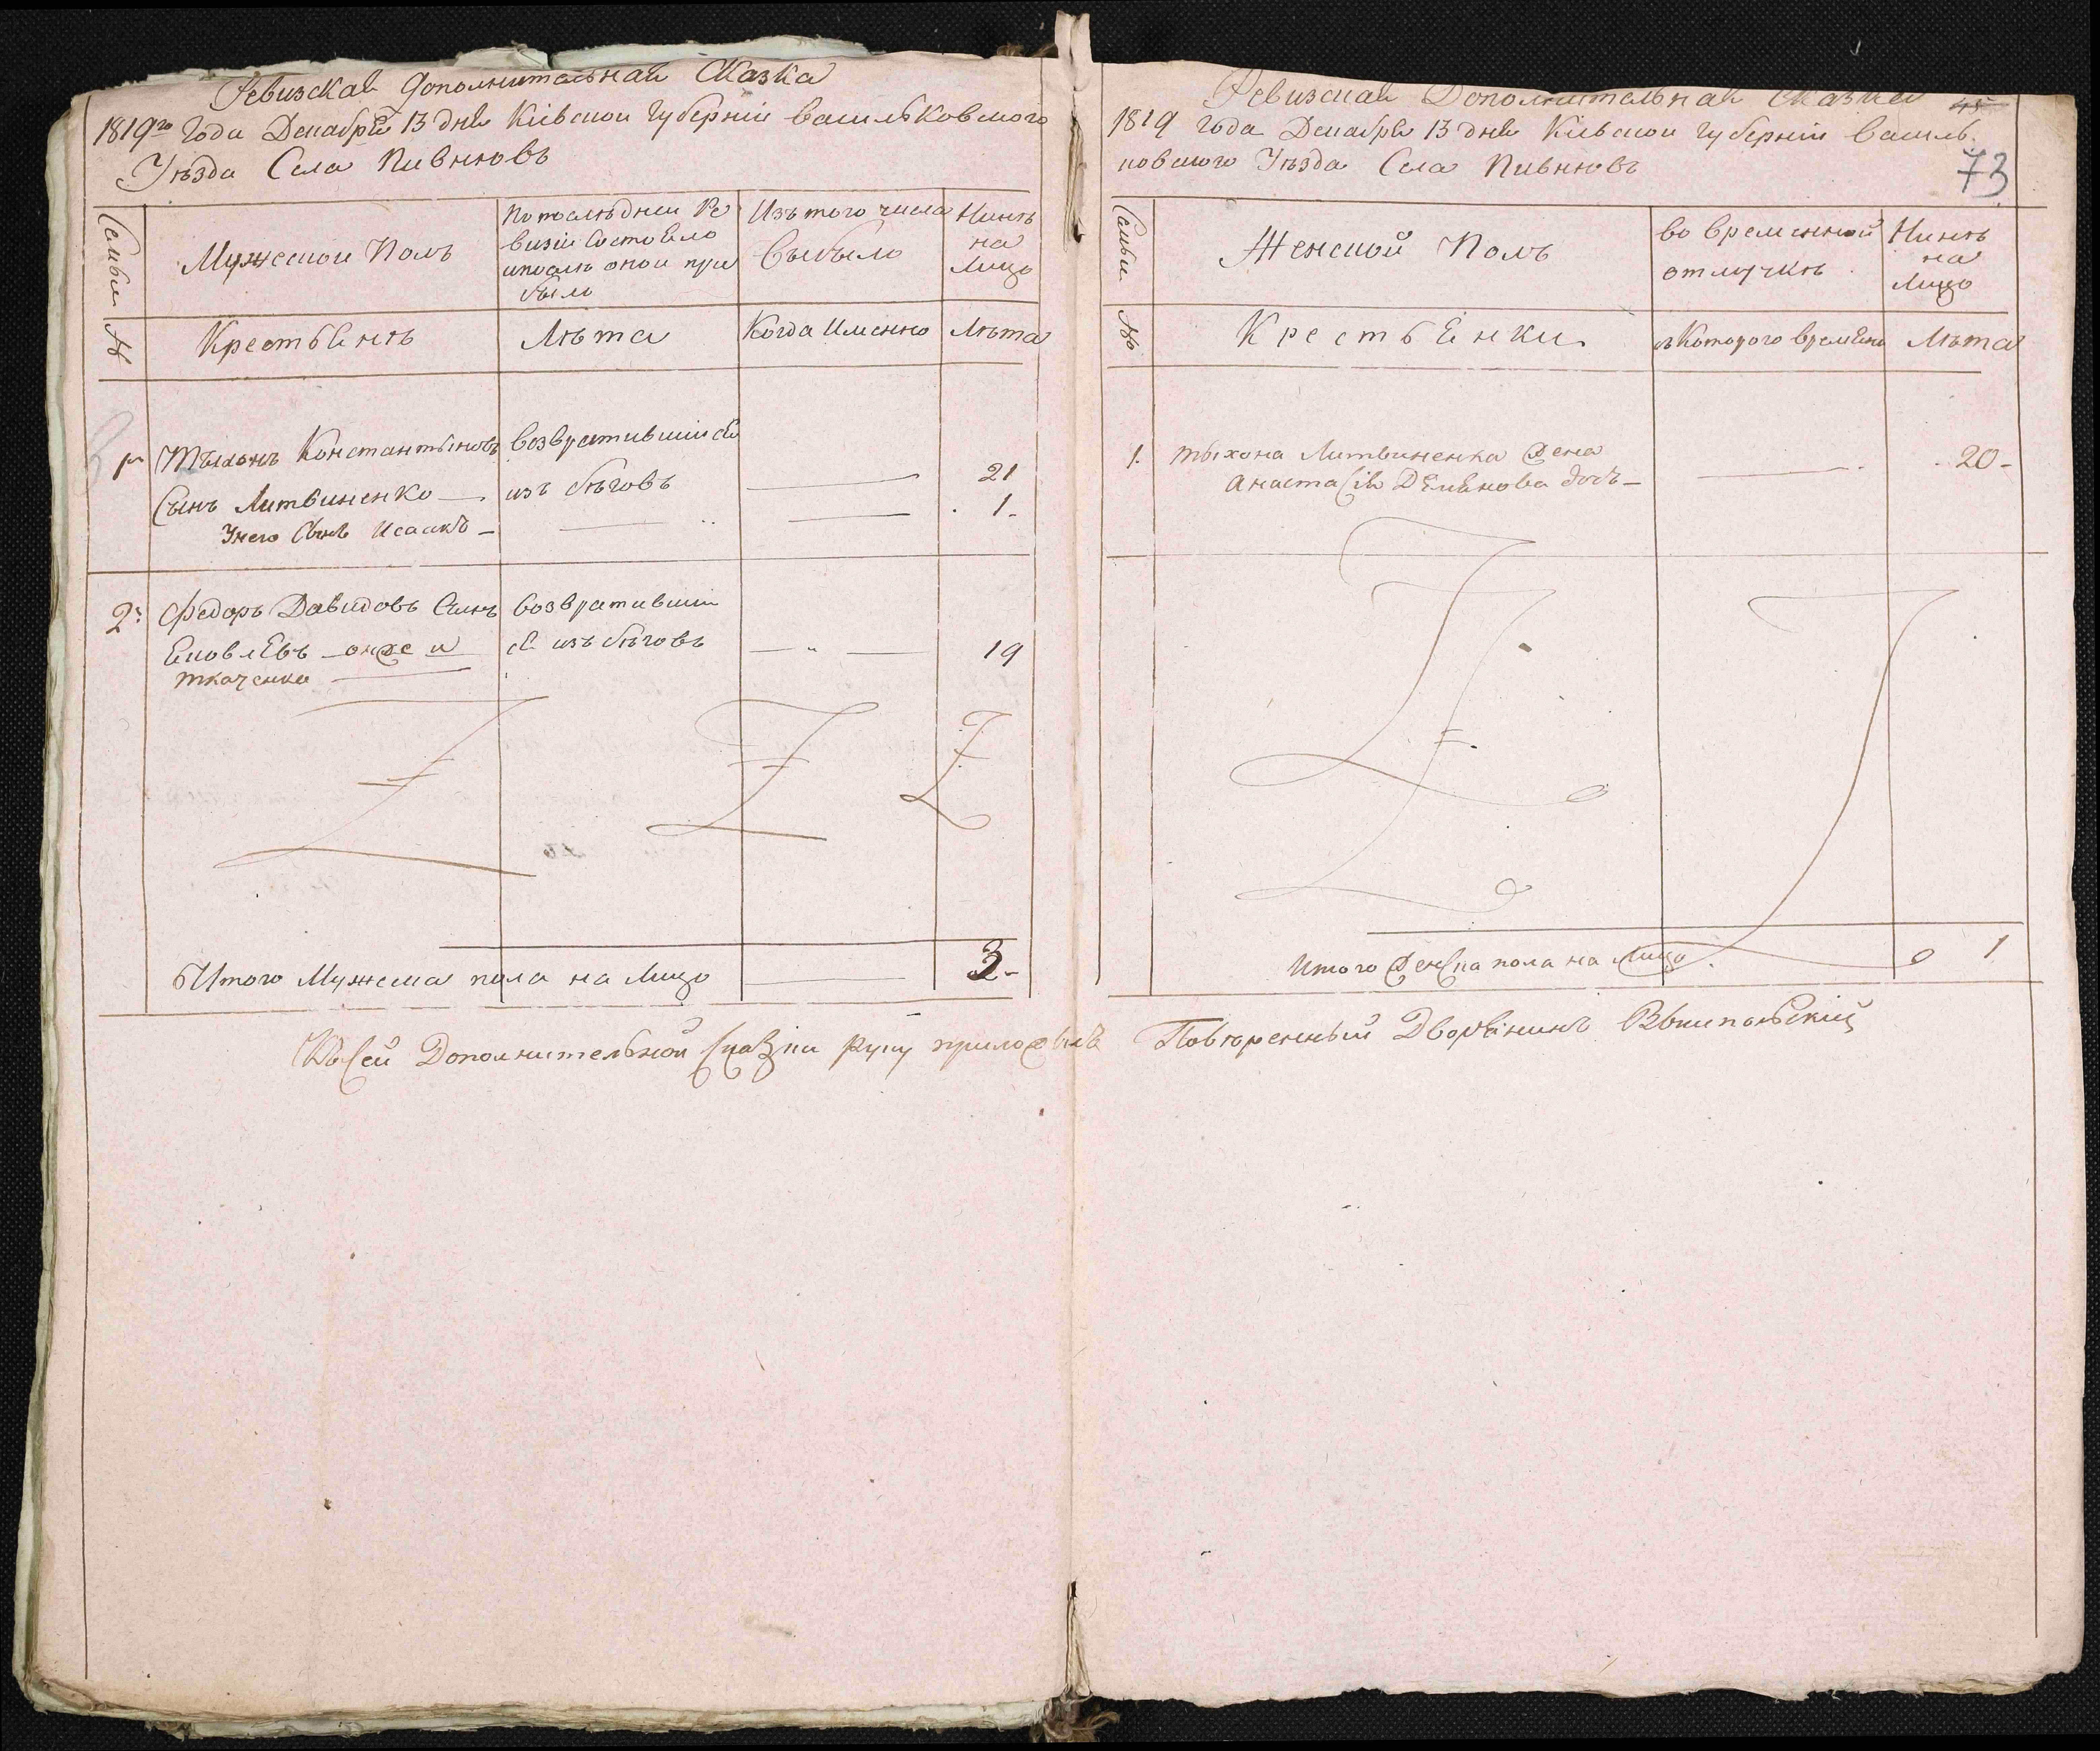 Ревизская дополнительная Сказка
1819го Года Декабря 13 дня Кіевской Губерніи Васильковского
Уезда Села Пивнювъ
Семьи
№
Мужеской Полъ
По последней Ре
визіи Состояло
и после оной при
было
Изъ того числа
Выбыло
Нинѣ
на
Лицо
Крестьянѣ
Лѣта
Когда Именно
Лѣта
1
Тыхонъ Константыновъ
Сынъ Литвиненко
возвратившийся
изъ бѣговъ
21
Унего Сынъ Исаакъ
1
2
Федоръ Давидовъ Синъ
Яковлѣвъ онже и
Ткаченко
возвративши
ся изъ бѣговъ
19
Итого Мужеска пола на Лицо
3
Ревизская Дополнительная Сказка
45
1819 Года Декабря 13 дня Кіевской Губерніи Василь
ковского Уѣзда Села Пивнювъ
73
Семьи
№
Женской Полъ
во временной
отлучкѣ
Нинѣ
на
Лицо
Крестьянки
съ Которого времяни
Лѣта
1.
Тыхона Литвиненка Жена
Анастасія Демянова дочъ
20
Итого Женска пола на Лицо
1
Къ Сей Дополнительной Сказки Руку приложилъ Повѣренный Дворянинъ